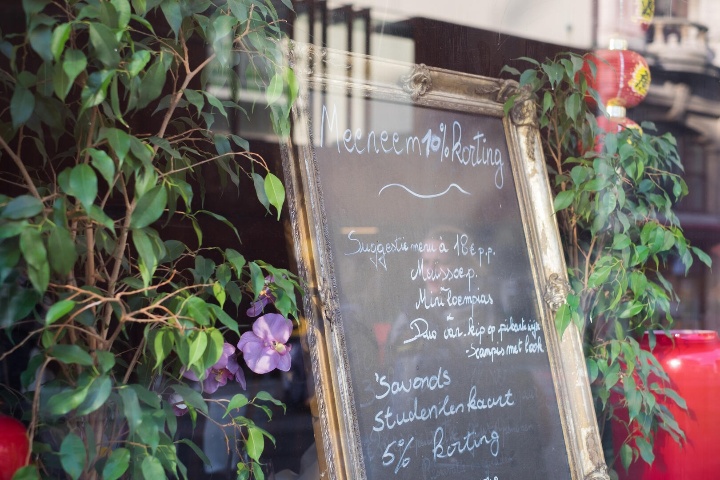 Meeneem 10% korting
Suggestie menu à 18€ p.p.
Maïssoep.
Mini loempias
Duo van kip op pikante wijze
scampis met look
'Savonds
studentenkaart
5% korting